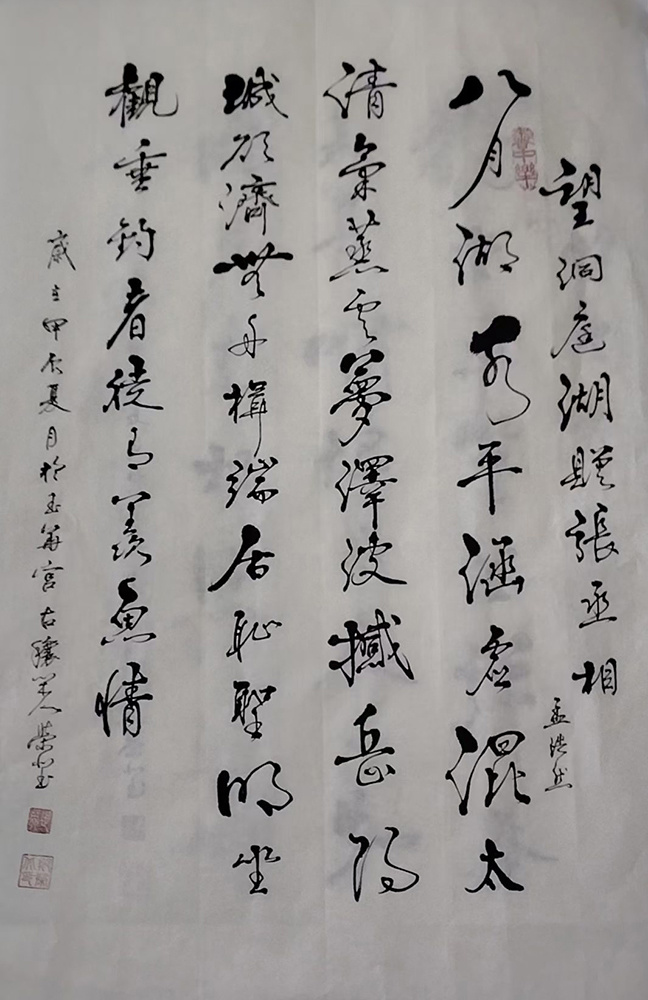 望洞庭湖贈張丞相
孟浩然
八月湖水平涵虚混太
清氣蒸雲夢澤波撼岳陽
城欲濟無舟楫端居耻聖明坐
觀垂釣者徒有羨魚情
歲在甲辰夏月於玉華宮古